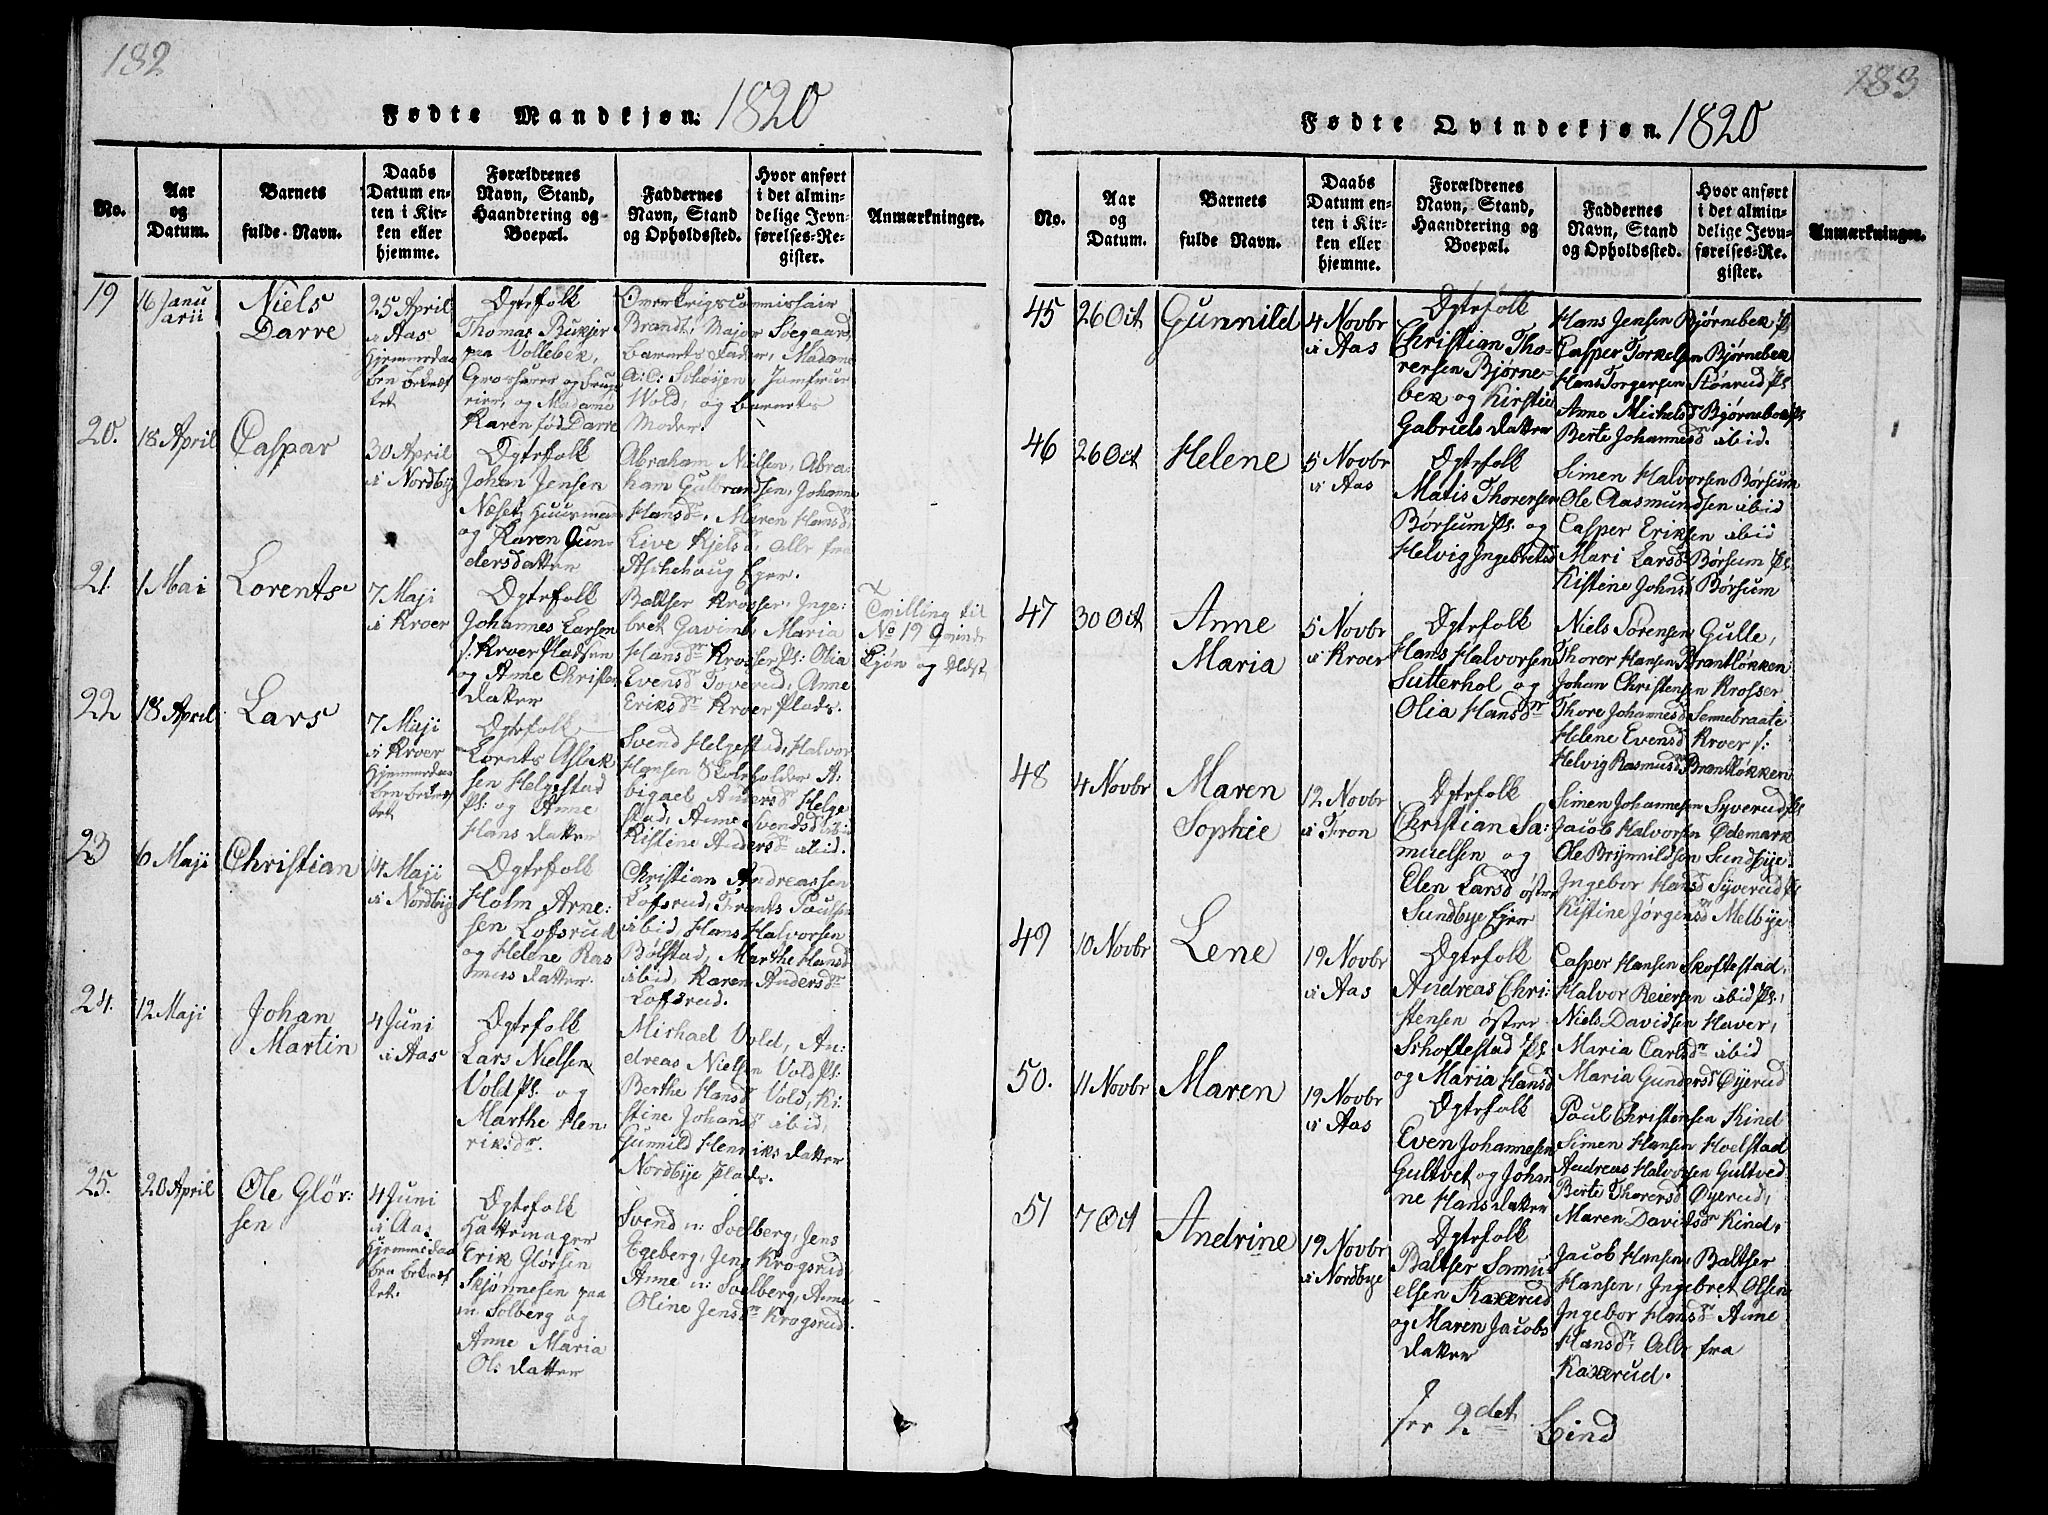 182
Fødte Mandkjøn: 1820
No.
Aar
og
Datum.
Barnets
fulde Navn.
Daabs
Datum en-
ten i Kir-
ken eller
hjemme.
Forældrenes
Navn, Stand,
Haandtering og
Boepæl.
Faddernes
Navn, Stand
og Opholdssted.
Hvor anført
i det almin-
delige Jevn-
førelses-Re-
gister.
Anmærkninger.
19
16 Janu
arii
Niels
Darre
25 April
i Aas
Hjemmedaa
ben bekræf
tet
Ægtefolk
Thomas
paa Vollebek,
og
og Madame
Karen fød Darre
Brandt, Major Soegaard,
barnets Fader, Madame
Jomfrue
Wold, og barnets
Moder.
20.
18 April
Caspar
30 April
i Nordbye
Ægtefolk
Johan Jensen
Næset Huusmand
og Karen Gun
dersdatter
Abraham Nielsen, Abra
ham Gulbrandsen, Johanne
Hansdr. Maren Hansdr
Live Kjelsd, alle fra
Aschehoug Ejer.
21.
1 Mai
Lorents
7 Maji
i Kroer
Ægtefolk
Johannes Larsen
s: Kroer Pladsen
og Anne Christens
datter
Baltser Krosser, Inge:
bret Maria
Hansdr Krosser Pl: Olia
Evensd Toverud, Anne
Eriksdr Kroer Plads.
Tvilling til
No 19 Qvinde
Kjøn og ældst
22
18 April
Lars
7 Maji
i Kroer
Hjemmedaa
ben bekræf
tet
Ægtefolk
Lornts Aslak
sen Helgestad
Pl: og Anne
Hans datter
Svend Helgestad, Halvor
Hansen Skoleholder A:
bigael Andersdr Helge
stad, Anne Svendsd ibid
Kistine Andersd ibid.
23
6 Maji
Christian
14 Maji
i Nordbye
Ægtefolk
Holm Arne:
sen Lofsrud
og Helene Ras
mus datter.
Christian Andreassen
Lofsrud, Frants Poulsen
ibid, Hans Halvorsen
Bølstad, Marthe Hansd
ibid, Karen Andersdr
Lofsrud.
24.
12 Maji
Johan
Martin
4 Juni
i Aas
Ægtefolk
Lars Nielsen
Vold Pl: og
Marthe Hen
riksdr.
Michael Vold, An:
dreas Nielsen Vold Pl:
Berthe Hansd Vold, Ki:
stine Johansd ibid,
Gunnild Henriks datter
Nordbye Plads.
25.
20 April
Ole Glør:
sen
4 Juni
i Aas
Hjemmedaa
ben bekræf
tet.
Ægtefolk
Hattemager
Erik Glørsen
Skjønnesen paa
n: Solberg og
Anne Maria
Ols datter
Svend n: Soelberg, Jens
Egeberg, Jens Krogsrud
Anne n: Soelberg, Anne
Oline Jensdr Krogsrud.
183
Fødte Qvindekjøn. 1820
No.
Aar
og
Datum.
Barnets
fulde Navn.
Daabs
Datum en-
ten i Kir-
ken eller
hjemme.
Forældrenes
Navn, Stand,
Haandtering og
Boepæl.
Faddernes
Navn, Stand
og Opholdssted.
Hvor anført
i det almin-
delige Jevn-
førelses-Re-
gister.
Anmærkninger.
45
26 Oct
Gunnild
4 Novbr
i Aas
Ægtefolk
Christian Tho-
rersen Bjørne-
bek og Kirstie
Gabriels datter
Hans Jensen Bjørnebek Pl
Casper Torkelsen Bjørnebek
Hans Torgersen Stønrud Pl
Anne Michelsd Bjørnebek Pl
Berte Johannesdr ibid.
46
26 Oct
Helene
5 Novbr
i Aas
Ægtefolk
Matis Thorersen
Børsum Pl. og
Helvig Ingebretsd
Simen Halvorsen Børsum
Ole Aasmundsen ibid
Casper Eriksen ibid
Mari Larsd Børsum Pl
Kistine Johnsd Børsum
47
30 Oct
Anne
Maria
5 Novbr
i Kroer
Ægtefolk
Hans Halvorsen
Sutterhol og
Olia Hansdr
Niels Sørensen Gulle,
Thorer Hansen Brantløkken
Johan Christensen Krosser
Thore Johannesd Sennebraate
Helene Evensd Kroer s:
Helvig Rasmusd Brantløkken
48
4 Novbr
Maren
Sophie
12 Novbr
i Fron
Ægtefolk
Christian Sa:
muelsen og
Elen Larsd østre
Sundbye Ejer
Simen Johannesen Syverud Pl
Jacob Halvorsen Ødemark
Ole Brynnildsen Sundbye
Ingebor Hansd Syverud Pl
Kistine Jørgensd Melbye
49
10 Novbr
Lene
19 Novbr
i Aas
Ægtefolk
Andreas Chri:
stensen østre
Schoftestad Pl
og Maria Hansd
Casper Hansen Skoftestad,
Halvor Reiersen ibid Pl:,
Niels Davidsen Haver,
Maria Carlsdr ibid
Maria Gundersd Øyerud
50.
11 Novbr
Maren
19 Novbr
i Aas
Ægtefolk
Even Johannesen
Gultvet og Johan
ne Hans datter
Poul Christensen Kind
Simen Hansen Hoelstad
Andreas Halvorsen Gultved
Berte Thorersd Øyerud,
Maren Davidsdr Kind,
51
7 Oct
Andrine
19 Novbr
i Nordbye
Ægtefolk
Baltser Samu
elsen Kaxerud
og Maren Jacobs
datter
Jacob Hansen, Baltser
Hansen, Ingebret Olsen
Ingebor Hansdr Anne
Hansdr, Alle fra
Kaxerud.
see 2det Bind